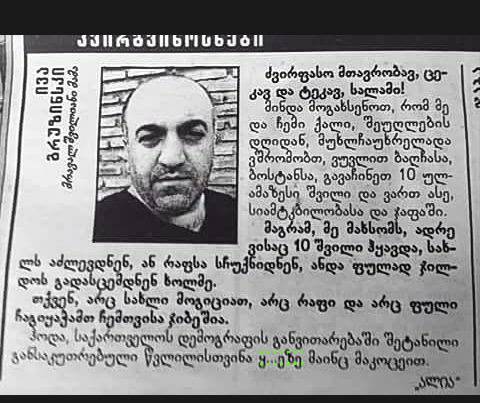 კვირგვინოსნები
ივა გრუზინსკი
მრავალშვილიანი მამა
ძვირფასო მთავრობავ, ცე-
კავ და ტეკავ, სალამი!
მინდა მოგახსენოთ, რომ მე
და ჩემი ქალი, შეუღლების
დღიდან, მუხლჩაუხრელადა
ვშრომობთ, ვუვლით ბაღჩასა,
ბოსტანსა, გავაჩინეთ 10 ულ-
ამაზესი შვილი და ვართ ასე,
სიამტკბილობასა და ჯაფაში.
მაგრამ, მე მახსომს, ადრე
ვისაც 10 შვილი ჰყავდა, სახ-
ლს აძლევდნენ, ან რაფსა სჩუქნიდნენ, ანდა ფულად ჯილ-
დოს გადასცემდნენ ხოლმე.
თქვენ, არც სახლი მოგიციათ, არც რაფი და არც ფული
ჩაგიყაჭამთ ჩემთვისა ჯიბეშია.
ჰოდა, საქართველოს დემოგრაფის განვითარებაში შეტანილი
განსაკუთრებული წვლილისთვინა ყ...ეზე მაინც მაკოცეით.
„ალია“